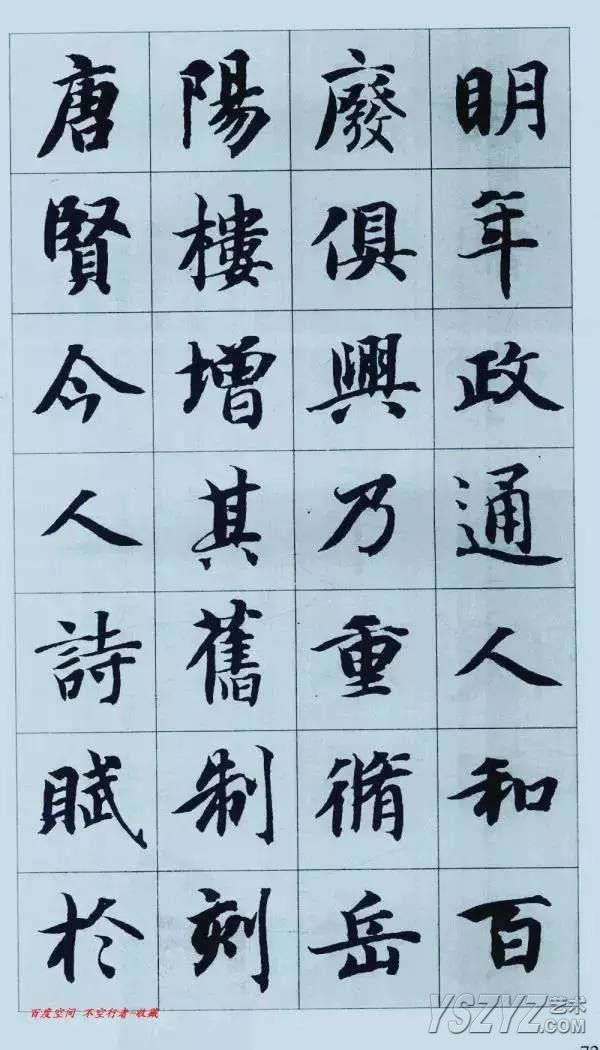 明年政通人和百
廢俱興乃重脩岳
陽樓增其舊制刻
唐賢今人詩賦於
百度空间 不空行者 收藏
YSZYZ艺术
.com